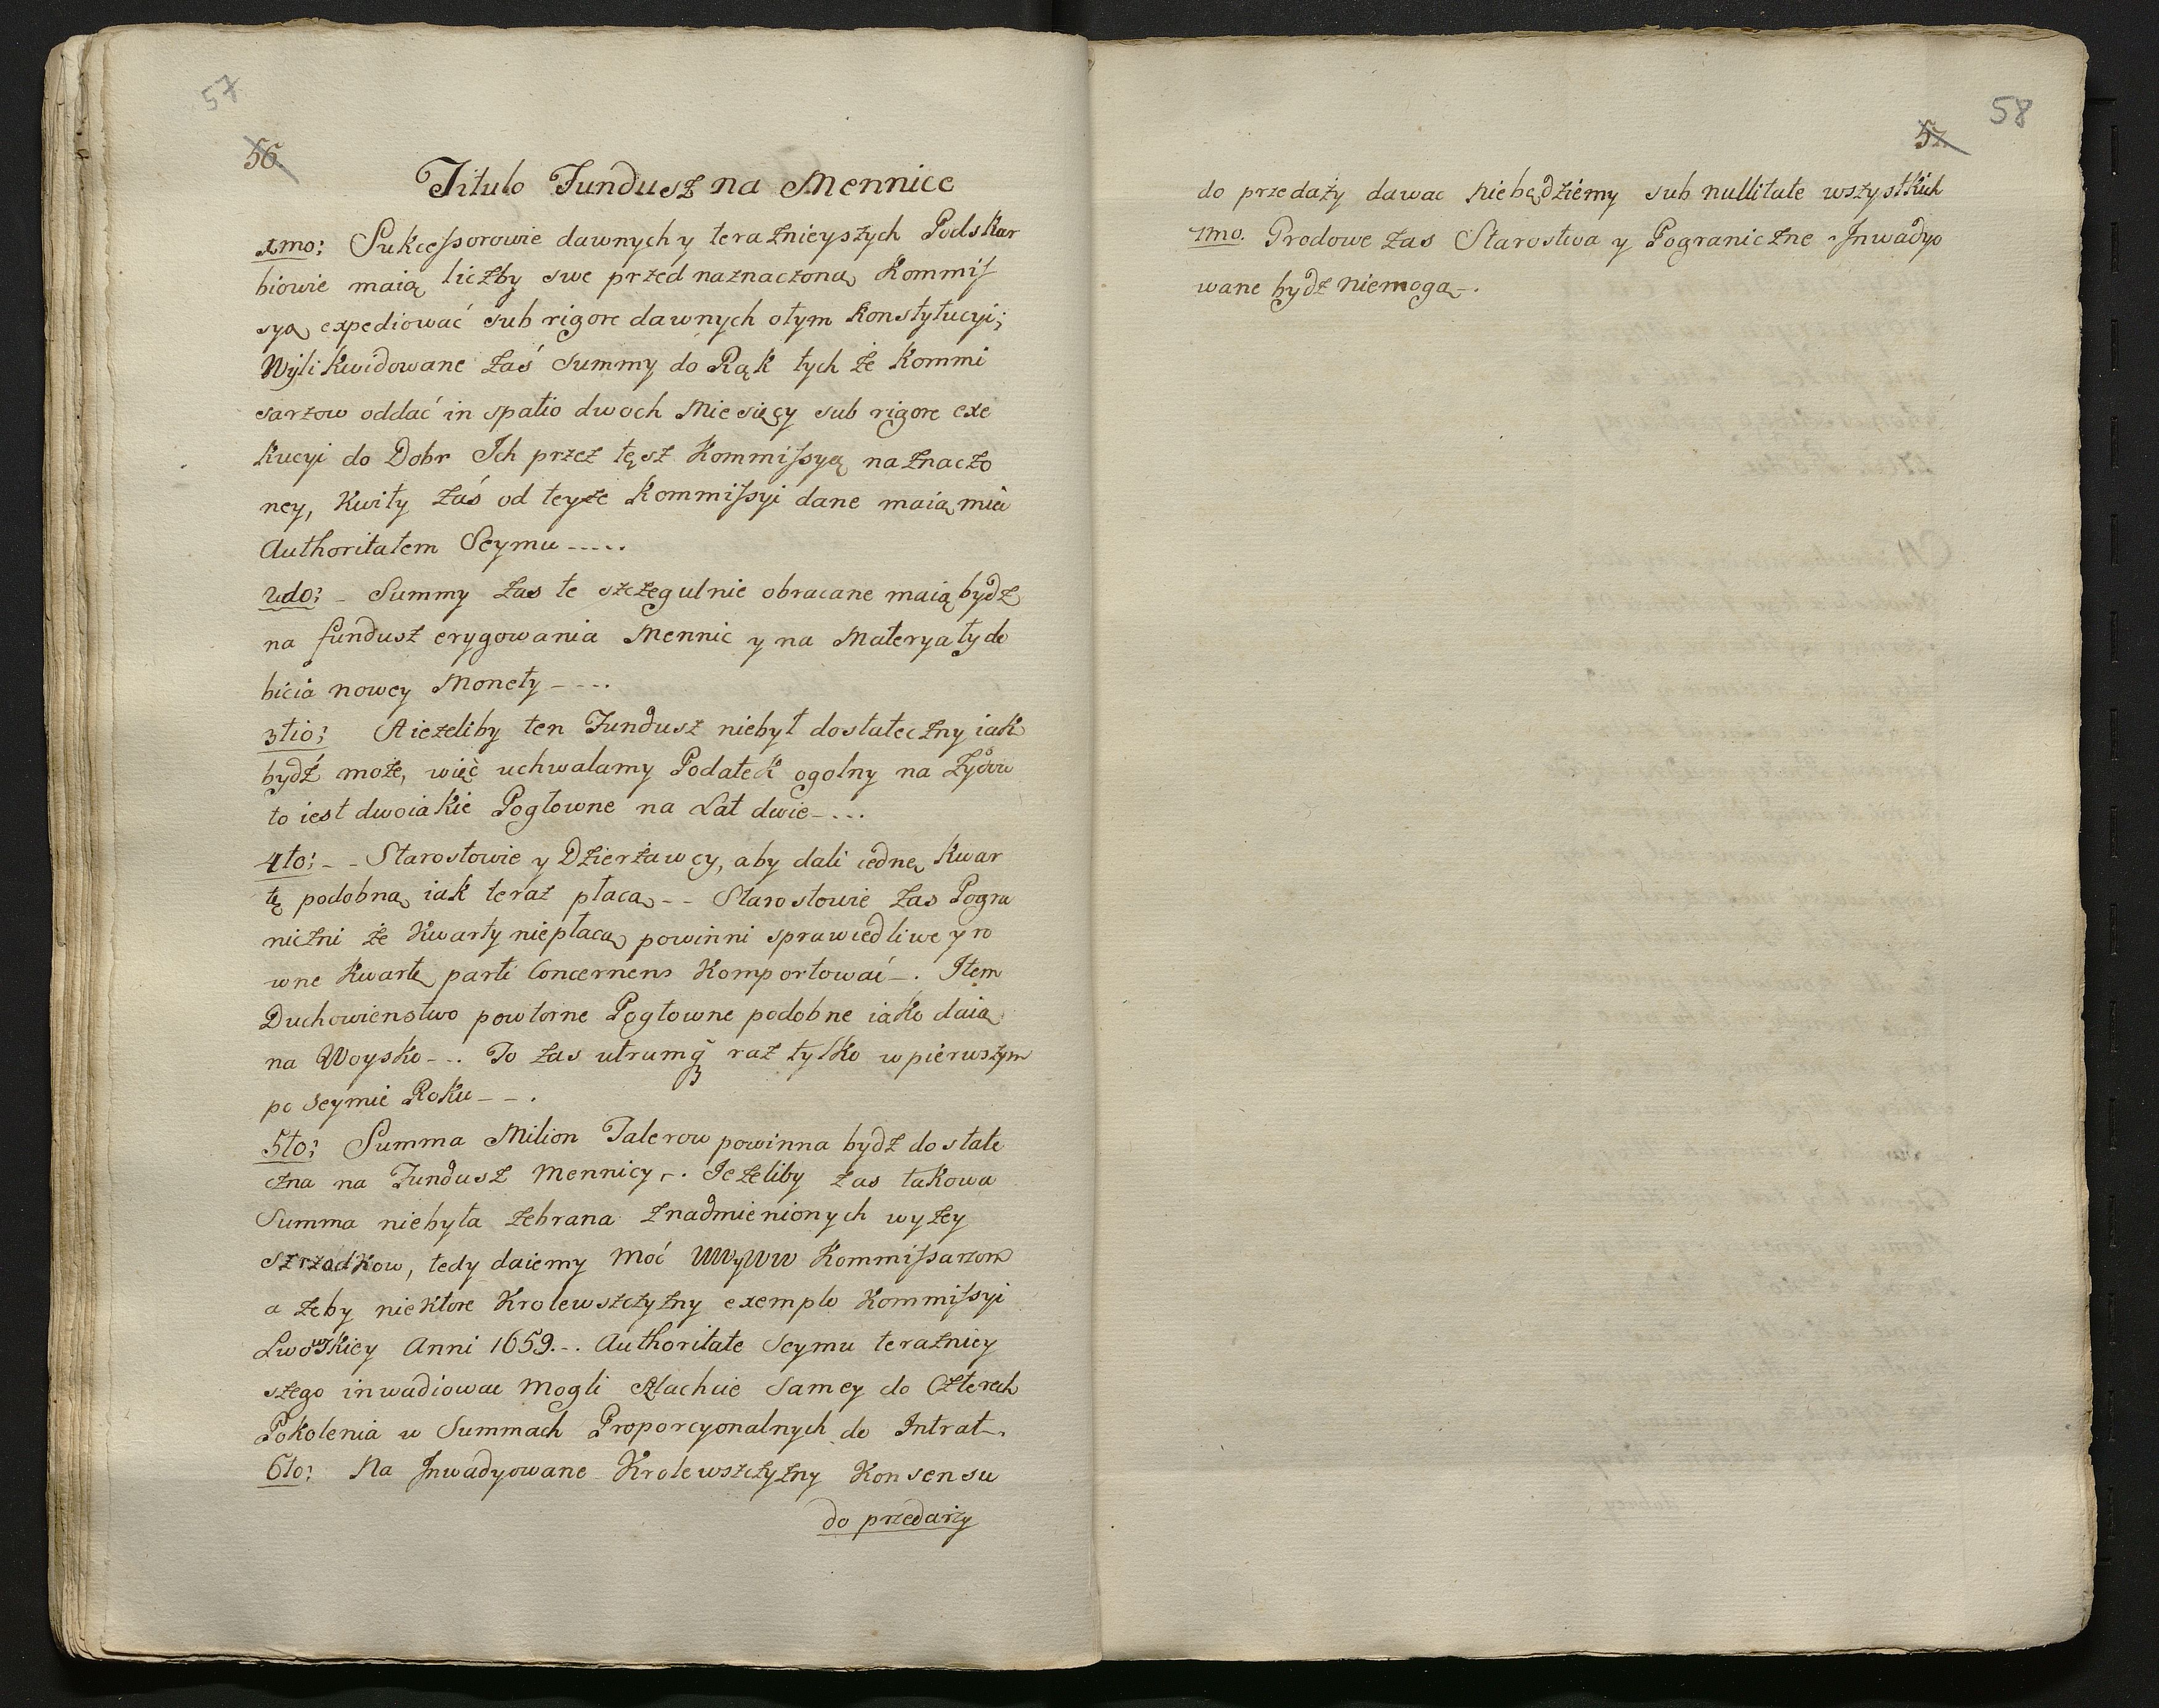 57
56.
Titulo Fundusz na Mennice
1mo: Sukcessorowie dawnych y teraznieyszych Podskar
biowie maią liczby swe przed naznaczoną Kommis
syą expediować sub rigore dawnych otym Konstytucyi;
Wylikwidowane zaś Summy do Rąk tych że Kommi
sarzow oddać in spatio dwoch Miesięcy sub rigore exe
kucyi do Dobr Ich przez tęsz Kommissyą naznaczo
ney, Kwity zaś od teyże Kommissyi dane maią mieć
Authoritatem Seymu -----
2do: - Summy zas te szczegulnie obracane maią bydz
na fundusz erygowania Mennic y na Materyały do
bicia nowey Monety ----
3tio: A iezeliby ten Fundusz niebył dostateczny iak
bydź może, więc uchwalamy Podatek ogolny na Zydow
to iest dwoiakie Pogłowne na Lat dwie ----
4to: -- Starostowie y Dzierżawcy, aby dali iednę Kwar
tę podobną iak teraz płacą -- Starostowie zas Pogra
niczni że Kwarty niepłacą powinni sprawiedliwe y ro
wne Kwartę parti Concernens Komportować -. Item
Duchowienstwo powtorne Pogłowne podobne iako daią
na Woysko --. To zas utrumq3 raz tylko w pierwszym
po Seymie Roku --.
5to: Summa Milion Talerow powinna bydz dostate
czna na Fundusz Mennicy -. Jeżeliby zas takowa
Summa niebyła zebrana znadmienionych wyzey
szrzodkow, tedy daiemy moć WWyWW Kommissarzom
a żeby niektore Krolewszczyzny exemplo Kommissyi
Lwowskiey Anni 1659.-. Authoritate Seymu terazniey
szego inwadiowac mogli Szlachcie Samey do Czterech
Pokolenia w Summach Proporcyonalnych do Intrat -.
6to: Na Inwadyowane Krolewszczyzny Konsensu
do przedaży
58
57.
do przedaży dawac niebędziemy sub nullitate wszystkich
7mo. Grodowe zas Starostwa y Pograniczne Inwadyo
wane bydz niemogą -.